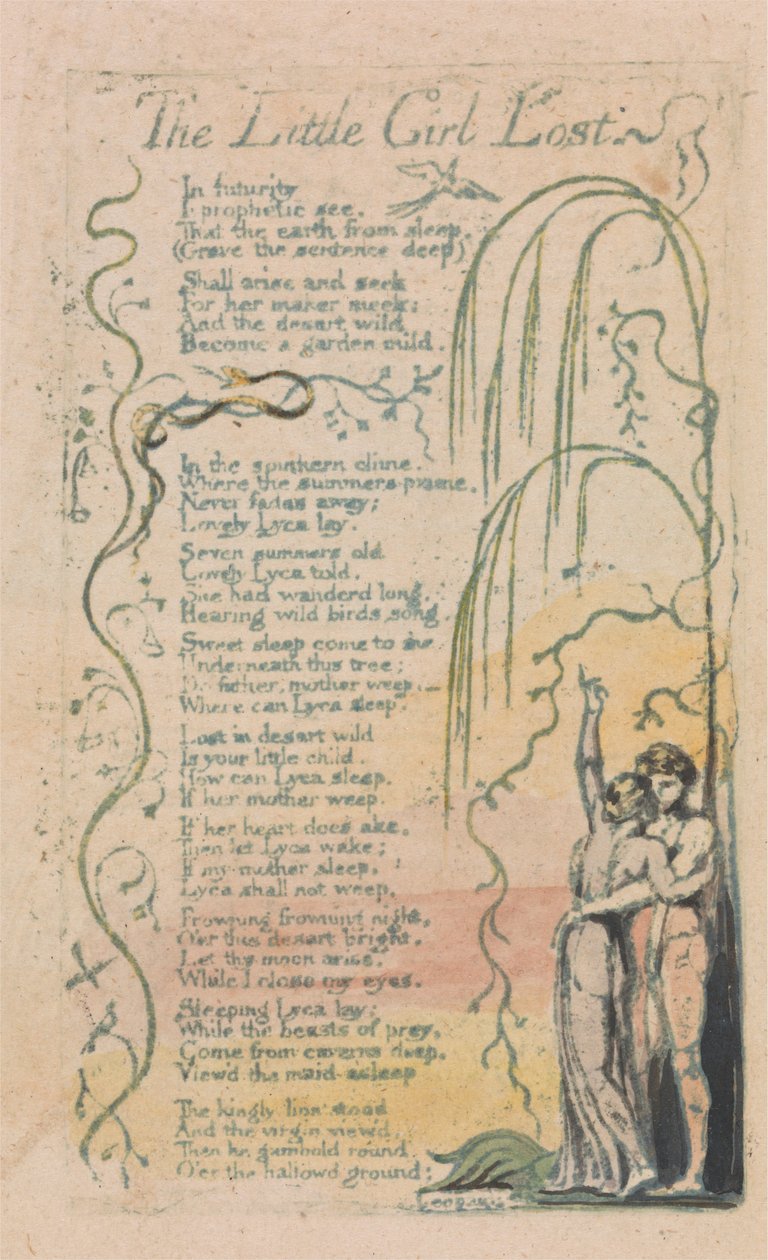 The Little Girl Lost.
In futurity
I prophetic see,
That the earth from sleep,
(Grave the sentence deep)
Shall arise and seek
For her maker meek:
And the desart wild
Become a garden mild.
In the southern clime,
Where the summers prime,
Never fades away;
Lovely Lyca lay.
Seven summers old
Lovely Lyca told,
She had wanderd long,
Hearing wild birds song.
Sweet sleep come to me
Underneath this tree;
Do father, mother weep.—
Where can Lyca sleep.
Lost in desart wild
Is your little child.
How can Lyca sleep,
If her mother weep.
If her heart does ake,
Then let Lyca wake;
If my mother sleep,
Lyca shall not weep.
Frowning frowning night,
O'er this desart bright,
Let thy moon arise,
While I close my eyes.
Sleeping Lyca lay;
While the beasts of prey,
Come from caverns deep,
View'd the maid asleep
The kingly lion stood
And the virgin view'd,
Then he gambold round
O'er the hallowd ground;